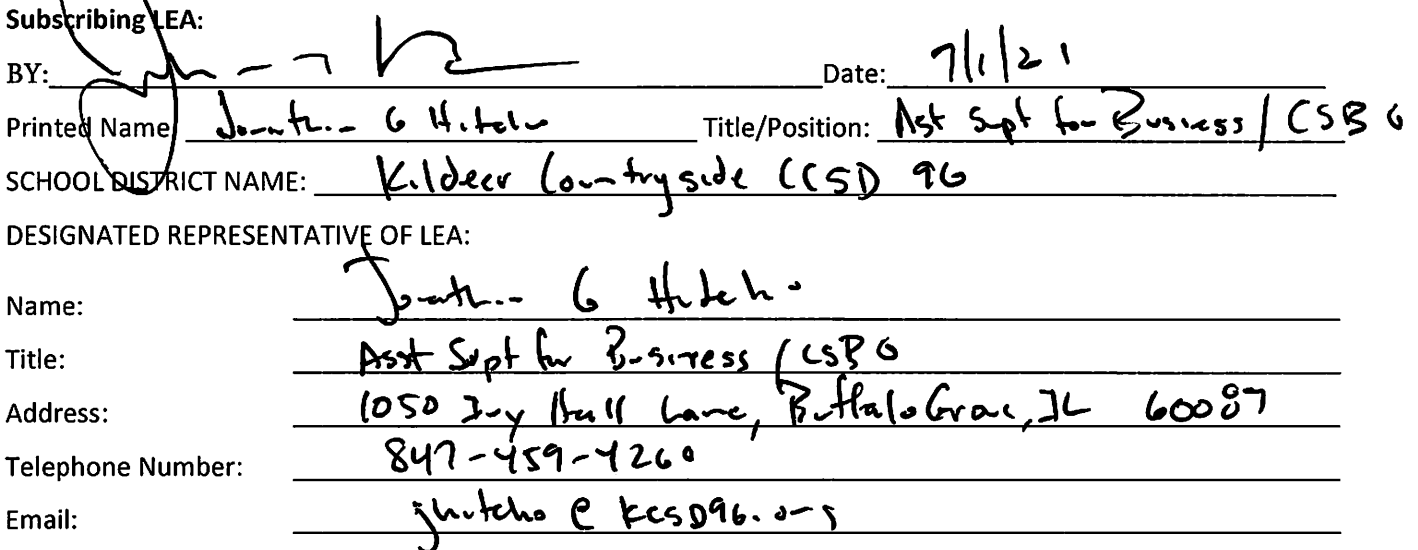 Subscribing LEA:
BY: Date: 7/1/21
Printed Name: Jonathan G Hitcho Title/Position: Asst Supt for Business / CSBO
SCHOOL DISTRICT NAME: Kildeer Countryside CCSD 96
DESIGNATED REPRESENTATIVE OF LEA:
Name: Jonathan G Hitcho
Title: Asst Supt for Business / CSBO
Address: 1050 Ivy Hall Lane, Buffalo Grove, IL 60089
Telephone Number: 847-459-4260
Email: jhitcho@kcsd96.org